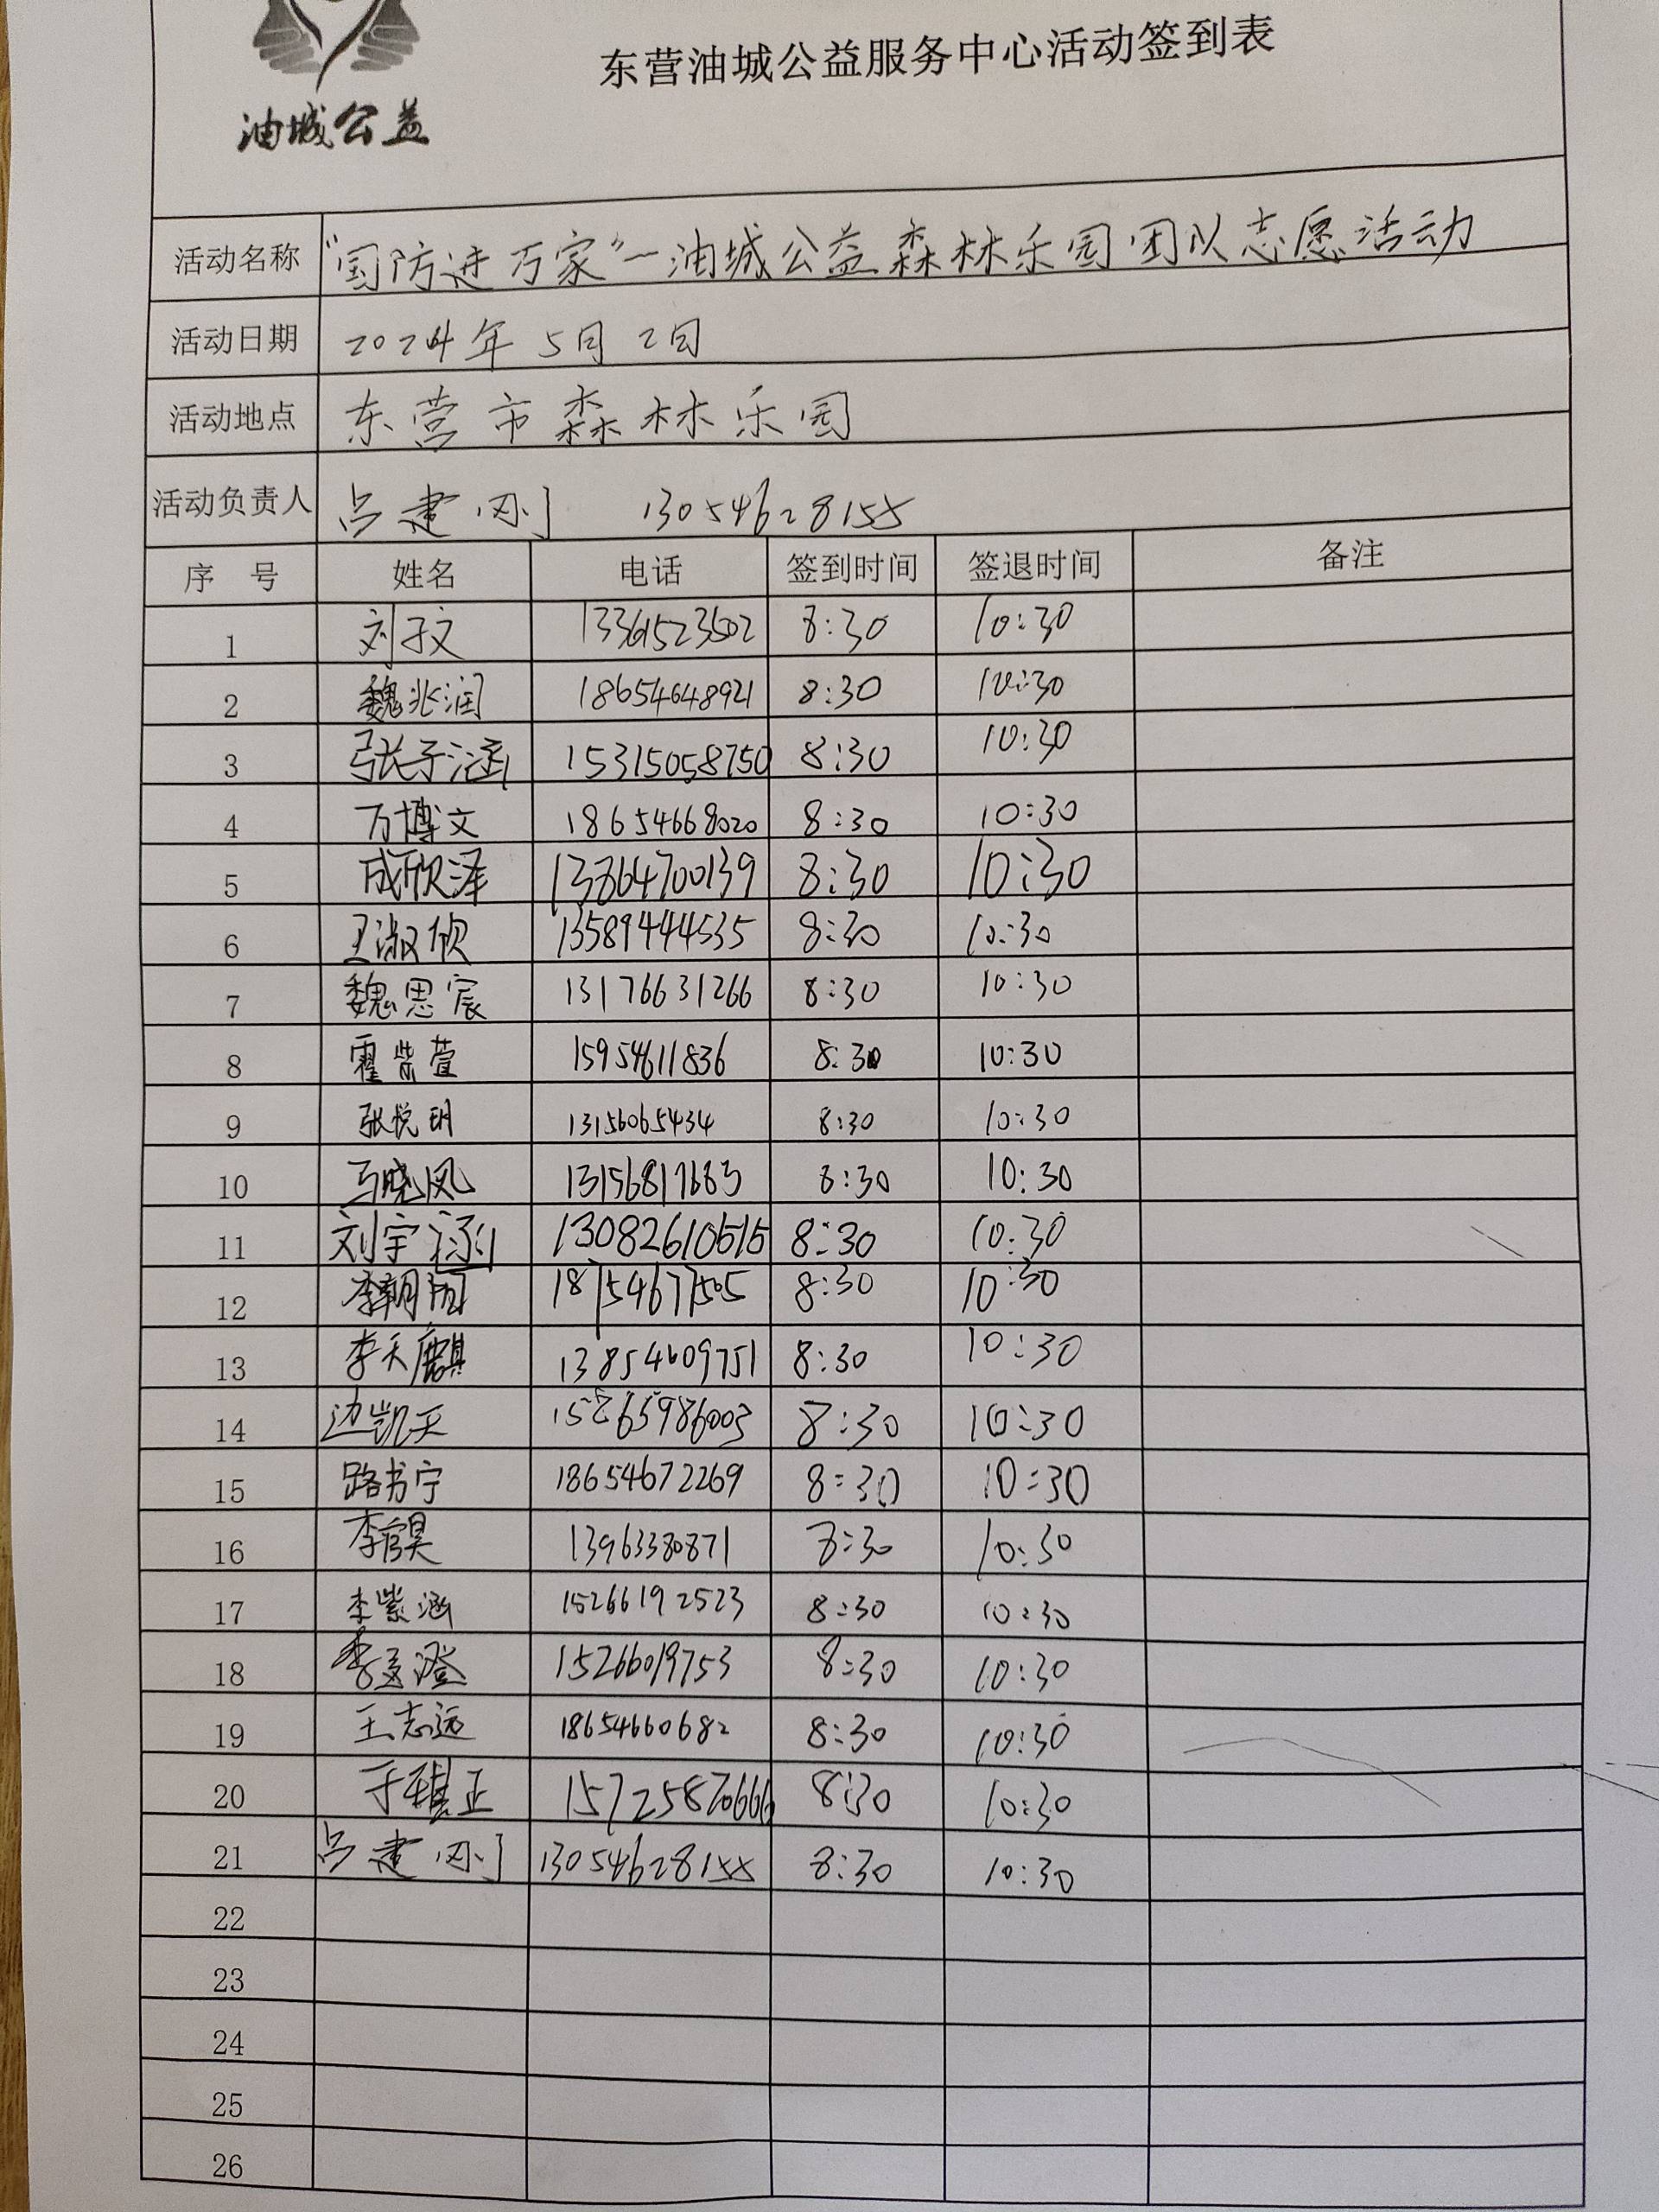 油城公益
东营油城公益服务中心活动签到表
活动名称 "国防进万家"—油城公益森林乐园团队志愿活动
活动日期 2024年5月2日
活动地点 东营市森林乐园
活动负责人 吕建刚 13054628155
序 号 姓名 电话 签到时间 签退时间 备注
1 刘子文 13361523502 8:30 10:30
2 魏兆润 18654648921 8:30 10:30
3 张子涵 15315058750 8:30 10:30
4 万博文 18654668020 8:30 10:30
5 成欣泽 13864700139 8:30 10:30
6 王淑欣 13589444535 8:30 10:30
7 魏思宸 13176631266 8:30 10:30
8 霍紫萱 15954611836 8:30 10:30
9 张悦玥 13156065434 8:30 10:30
10 马晓凤 13156817683 8:30 10:30
11 刘宇涵 13082610515 8:30 10:30
12 18754677505 8:30 10:30
13 李天麒 13854609751 8:30 10:30
14 边凯天 15265986003 8:30 10:30
15 路书宁 18654672269 8:30 10:30
16 13963380871 8:30 10:30
17 李紫涵 15266192523 8:30 10:30
18 15266019753 8:30 10:30
19 王志远 18654660682 8:30 10:30
20 于祺正 15725870666 8:30 10:30
21 吕建刚 13054628155 8:30 10:30
22
23
24
25
26